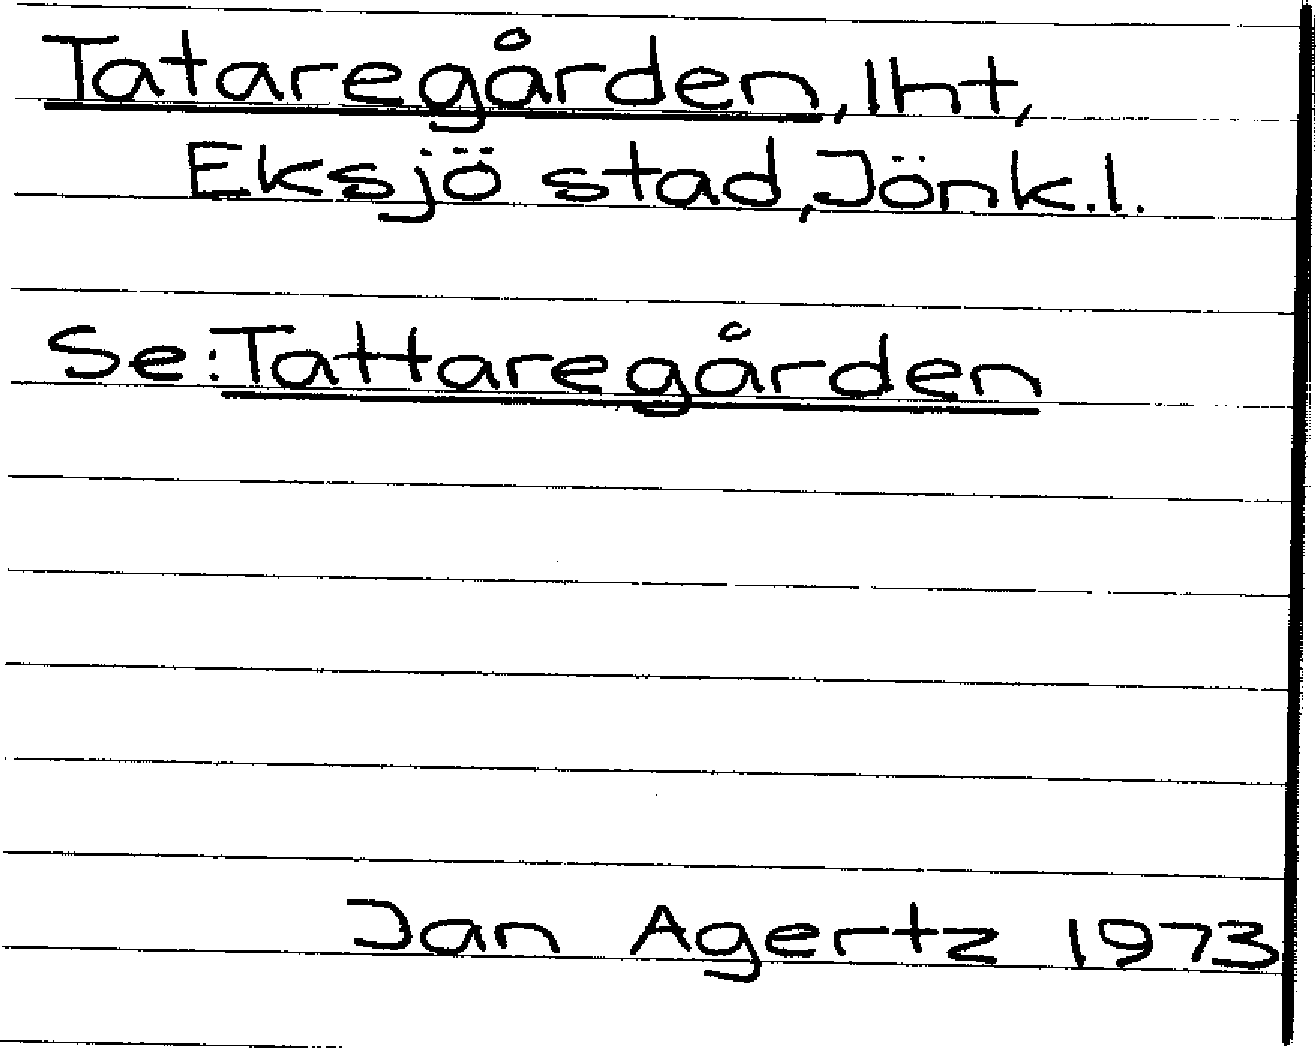 Tataregården, lht,
Eksjö stad, Jönk.l.
Se: Tattaregården
Jan Agertz 1973